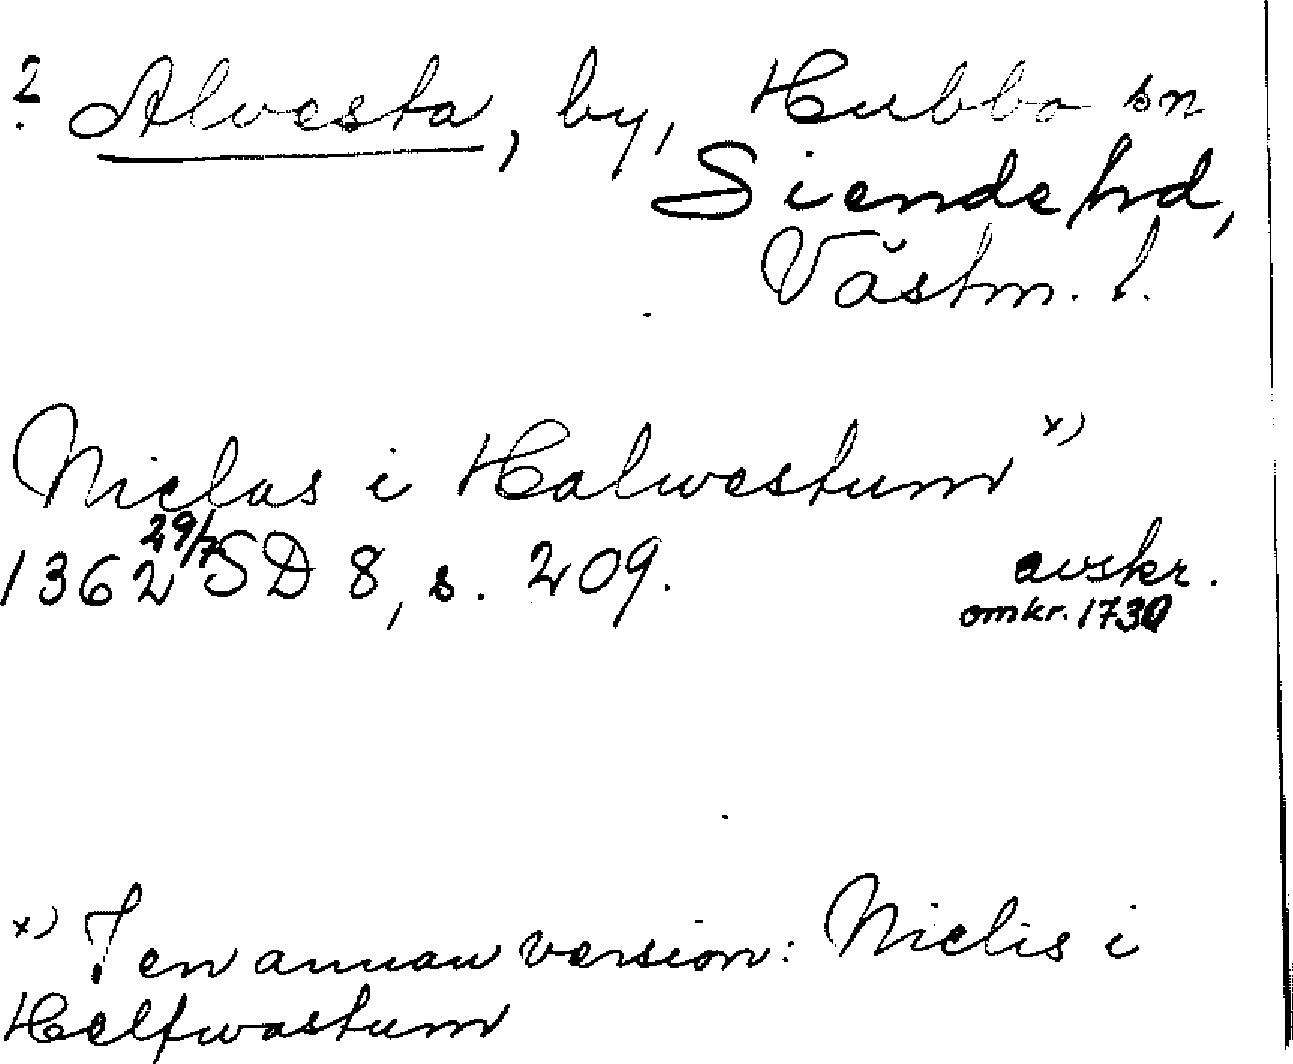 ? Alvesta, by, Hubbo sn
Siende hd,
Västm. l.
Niclas i Halwestum x)
1362 29/7 SD 8, s. 209. avskr.
omkr. 1730
x) I en annan version: Niclis i
Helfwastum